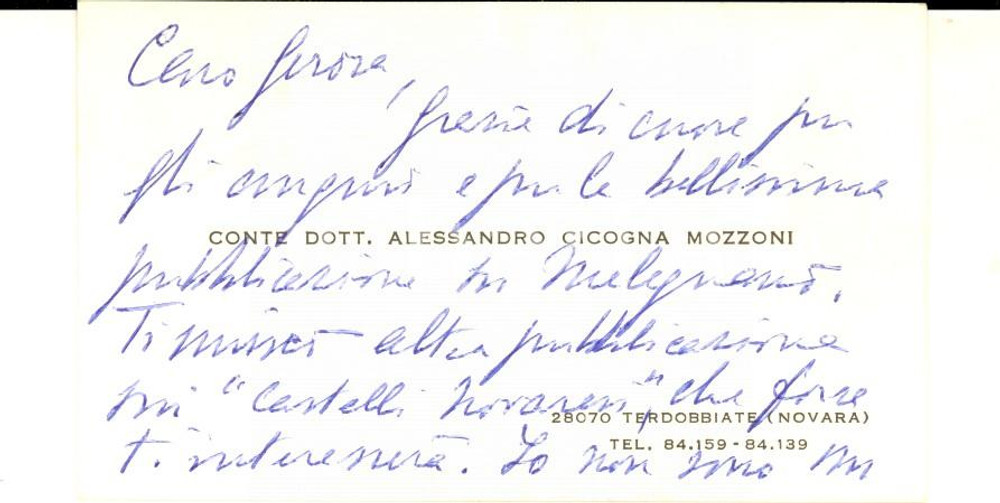 Caro Gerosa,
grazie di cuore per
gli auguri e per la bellissima
CONTE DOTT. ALESSANDRO CICOGNA MOZZONI
pubblicazione su Melegnano.
Ti unisco altra pubblicazione
sui "Castelli Novaresi", che forse
28070 TERDOBBIATE (NOVARA)
TEL. 84.159 - 84.139
ti interesserà. Io non sono su